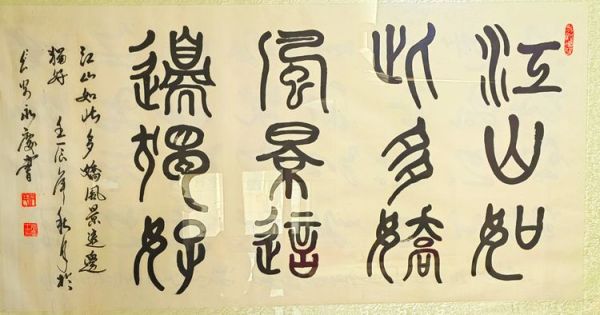 江山如
此多嬌
風景這
邊獨好
江山如此多嬌風景這邊
獨好 壬辰年秋月於
永慶書